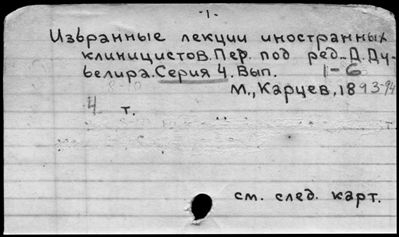 -1.
Избранные лекции иностранных
клиницистов. Пер. под ред. Д. Ду-
белира. Серия 4. Вып. 1-6
М., Карцев, 1893-94
4 т.
см. след. карт.